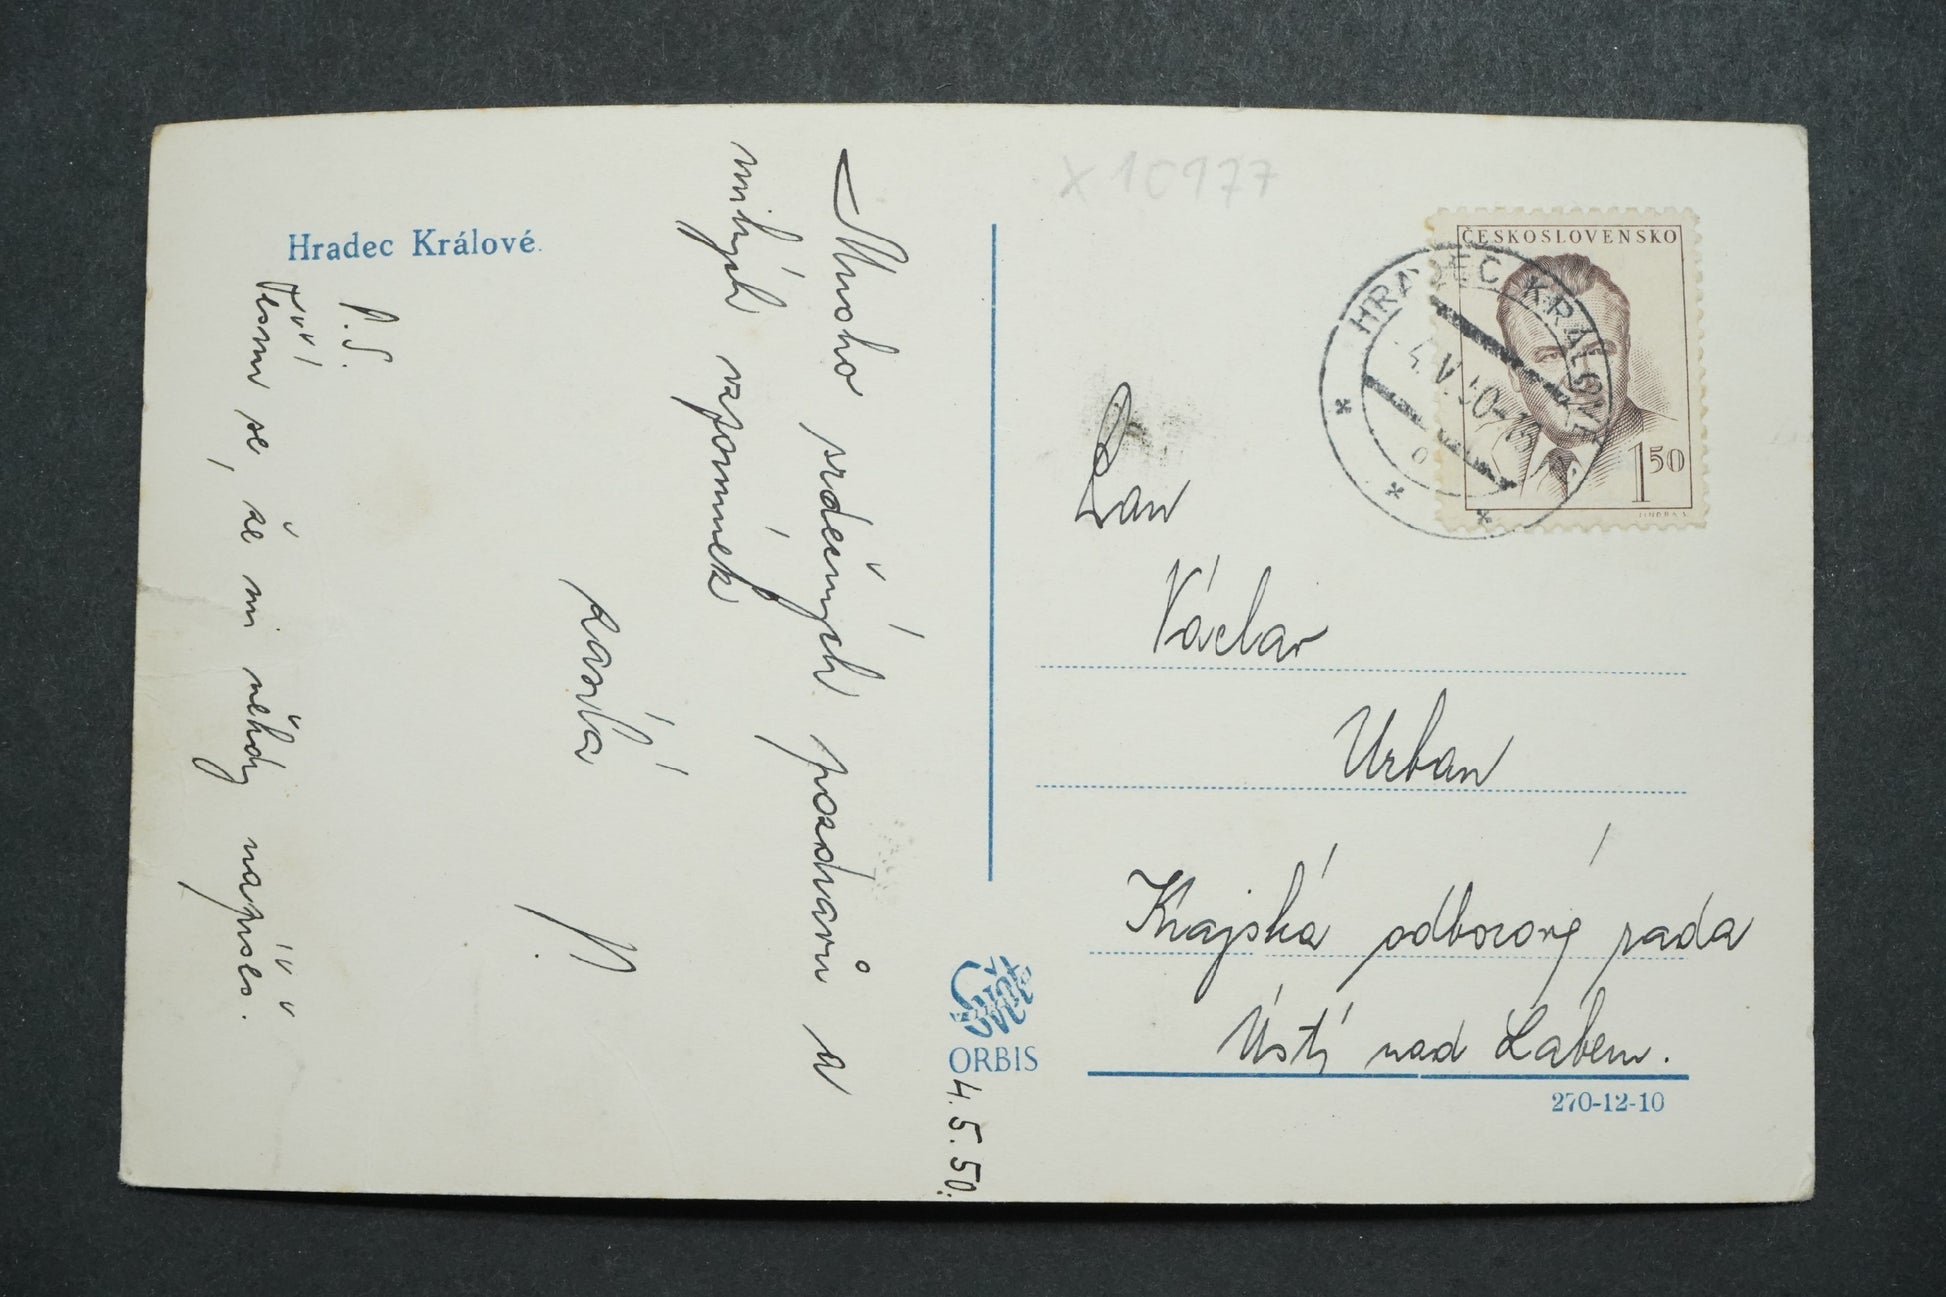 Hradec Králové
Mnoho srdečných pozdravů a
milých vzpomínek
zasílá
V.
P.S.
Těším se, že mi někdy napíšeš.
4.5.50.
ORBIS
X 10977
ČESKOSLOVENSKO
150
HRADEC KRÁLOVÉ
4.V.50-15
Pan
Václav
Urban
Krajská odborová rada
Ústí nad Labem.
270-12-10